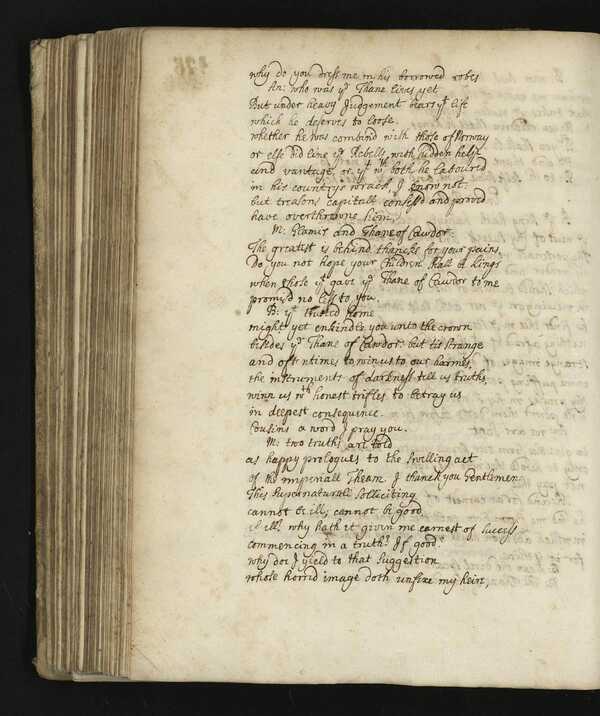 why do you dress me in his borrowed robes
An: who was yᵉ Thane lives yet
But under heavy Judgement bears yᵗ life
which he deserves to loose.
whether he was combind with those of Norway
or else did line yᵉ Rebells with hidden helpe
and vantage, or yᵗ wᵗʰ both he laboured
in his countrys wrack, I know not.
but treasons capitall confessd and proved
have overthrowne him.
M: Glamis and Thane of Cawdor.
The greatest is behind thancks for your pains.
Do you not hope your Children shall be kings
when those yᵗ gave yᵉ Thane of Cawdor to me
promisd no less to you.
B: yᵗ trusted home
might yet enkindle you unto the crown
besides yᵉ Thane of Cawdor. but tis strange
and oftentimes to win us to our harmes,
the instruments of darkness tell us truths
winn us wᵗʰ honest trifles to betray us
in deepest consequence.
Cousins a word I pray you.
M: two truths are told
as happy prologues to the swelling act
of the imperiall Theam. I thanck you Gentlemen
This supernaturall solliciting
cannot be ill, cannot be good.
if ill? why hath it given me earnest of success
commencing in a truth? If good?
why doe I yield to that suggestion
whose horrid image doth unfixe my heire,